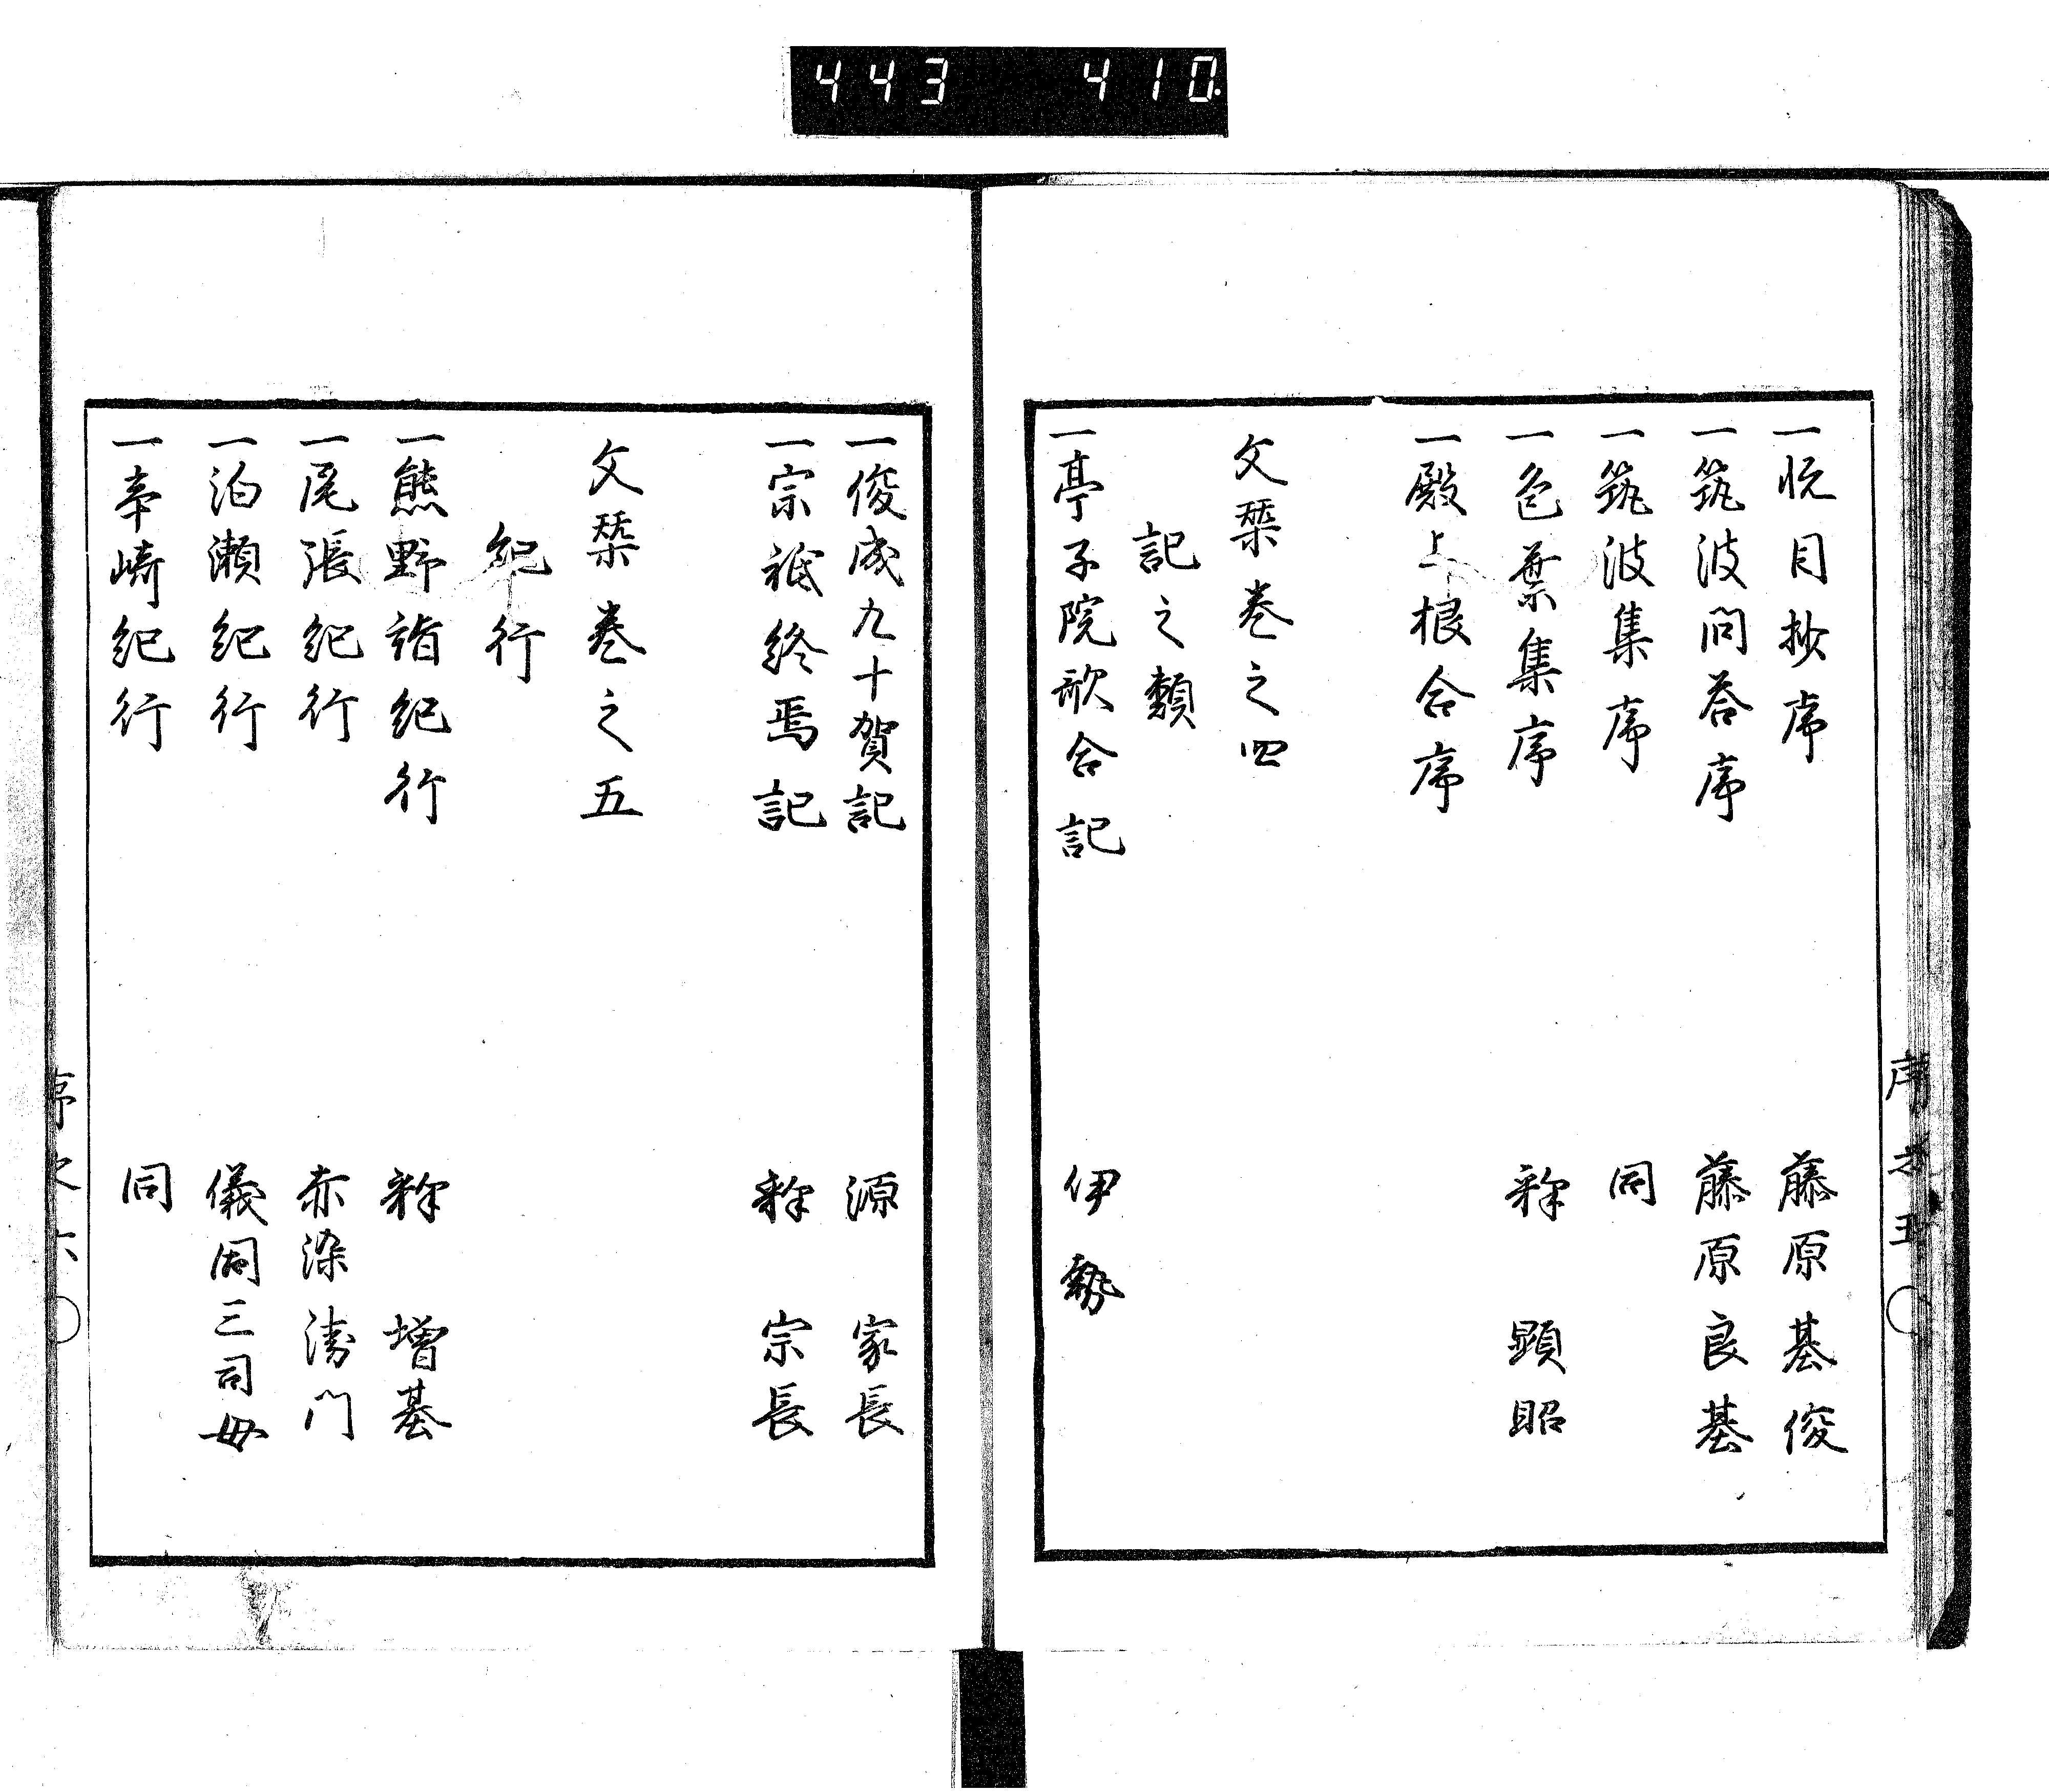 443 410.
一悦目抄序 藤原基俊
一筑波問荅序 藤原良基
一筑波集序 同
一色葉集序 釋 顕昭
一殿上根合序
文栞巻之四
記之類
一亭子院歌合記 伊勢
一俊成九十賀記 源 家長
一宗祇終焉記 釋 宗長
文栞巻之五
紀行
一熊野詣紀行 釋 増基
一尾張紀行 赤染衛門
一泊瀬紀行 儀同三司母
一奉﨑紀行 同